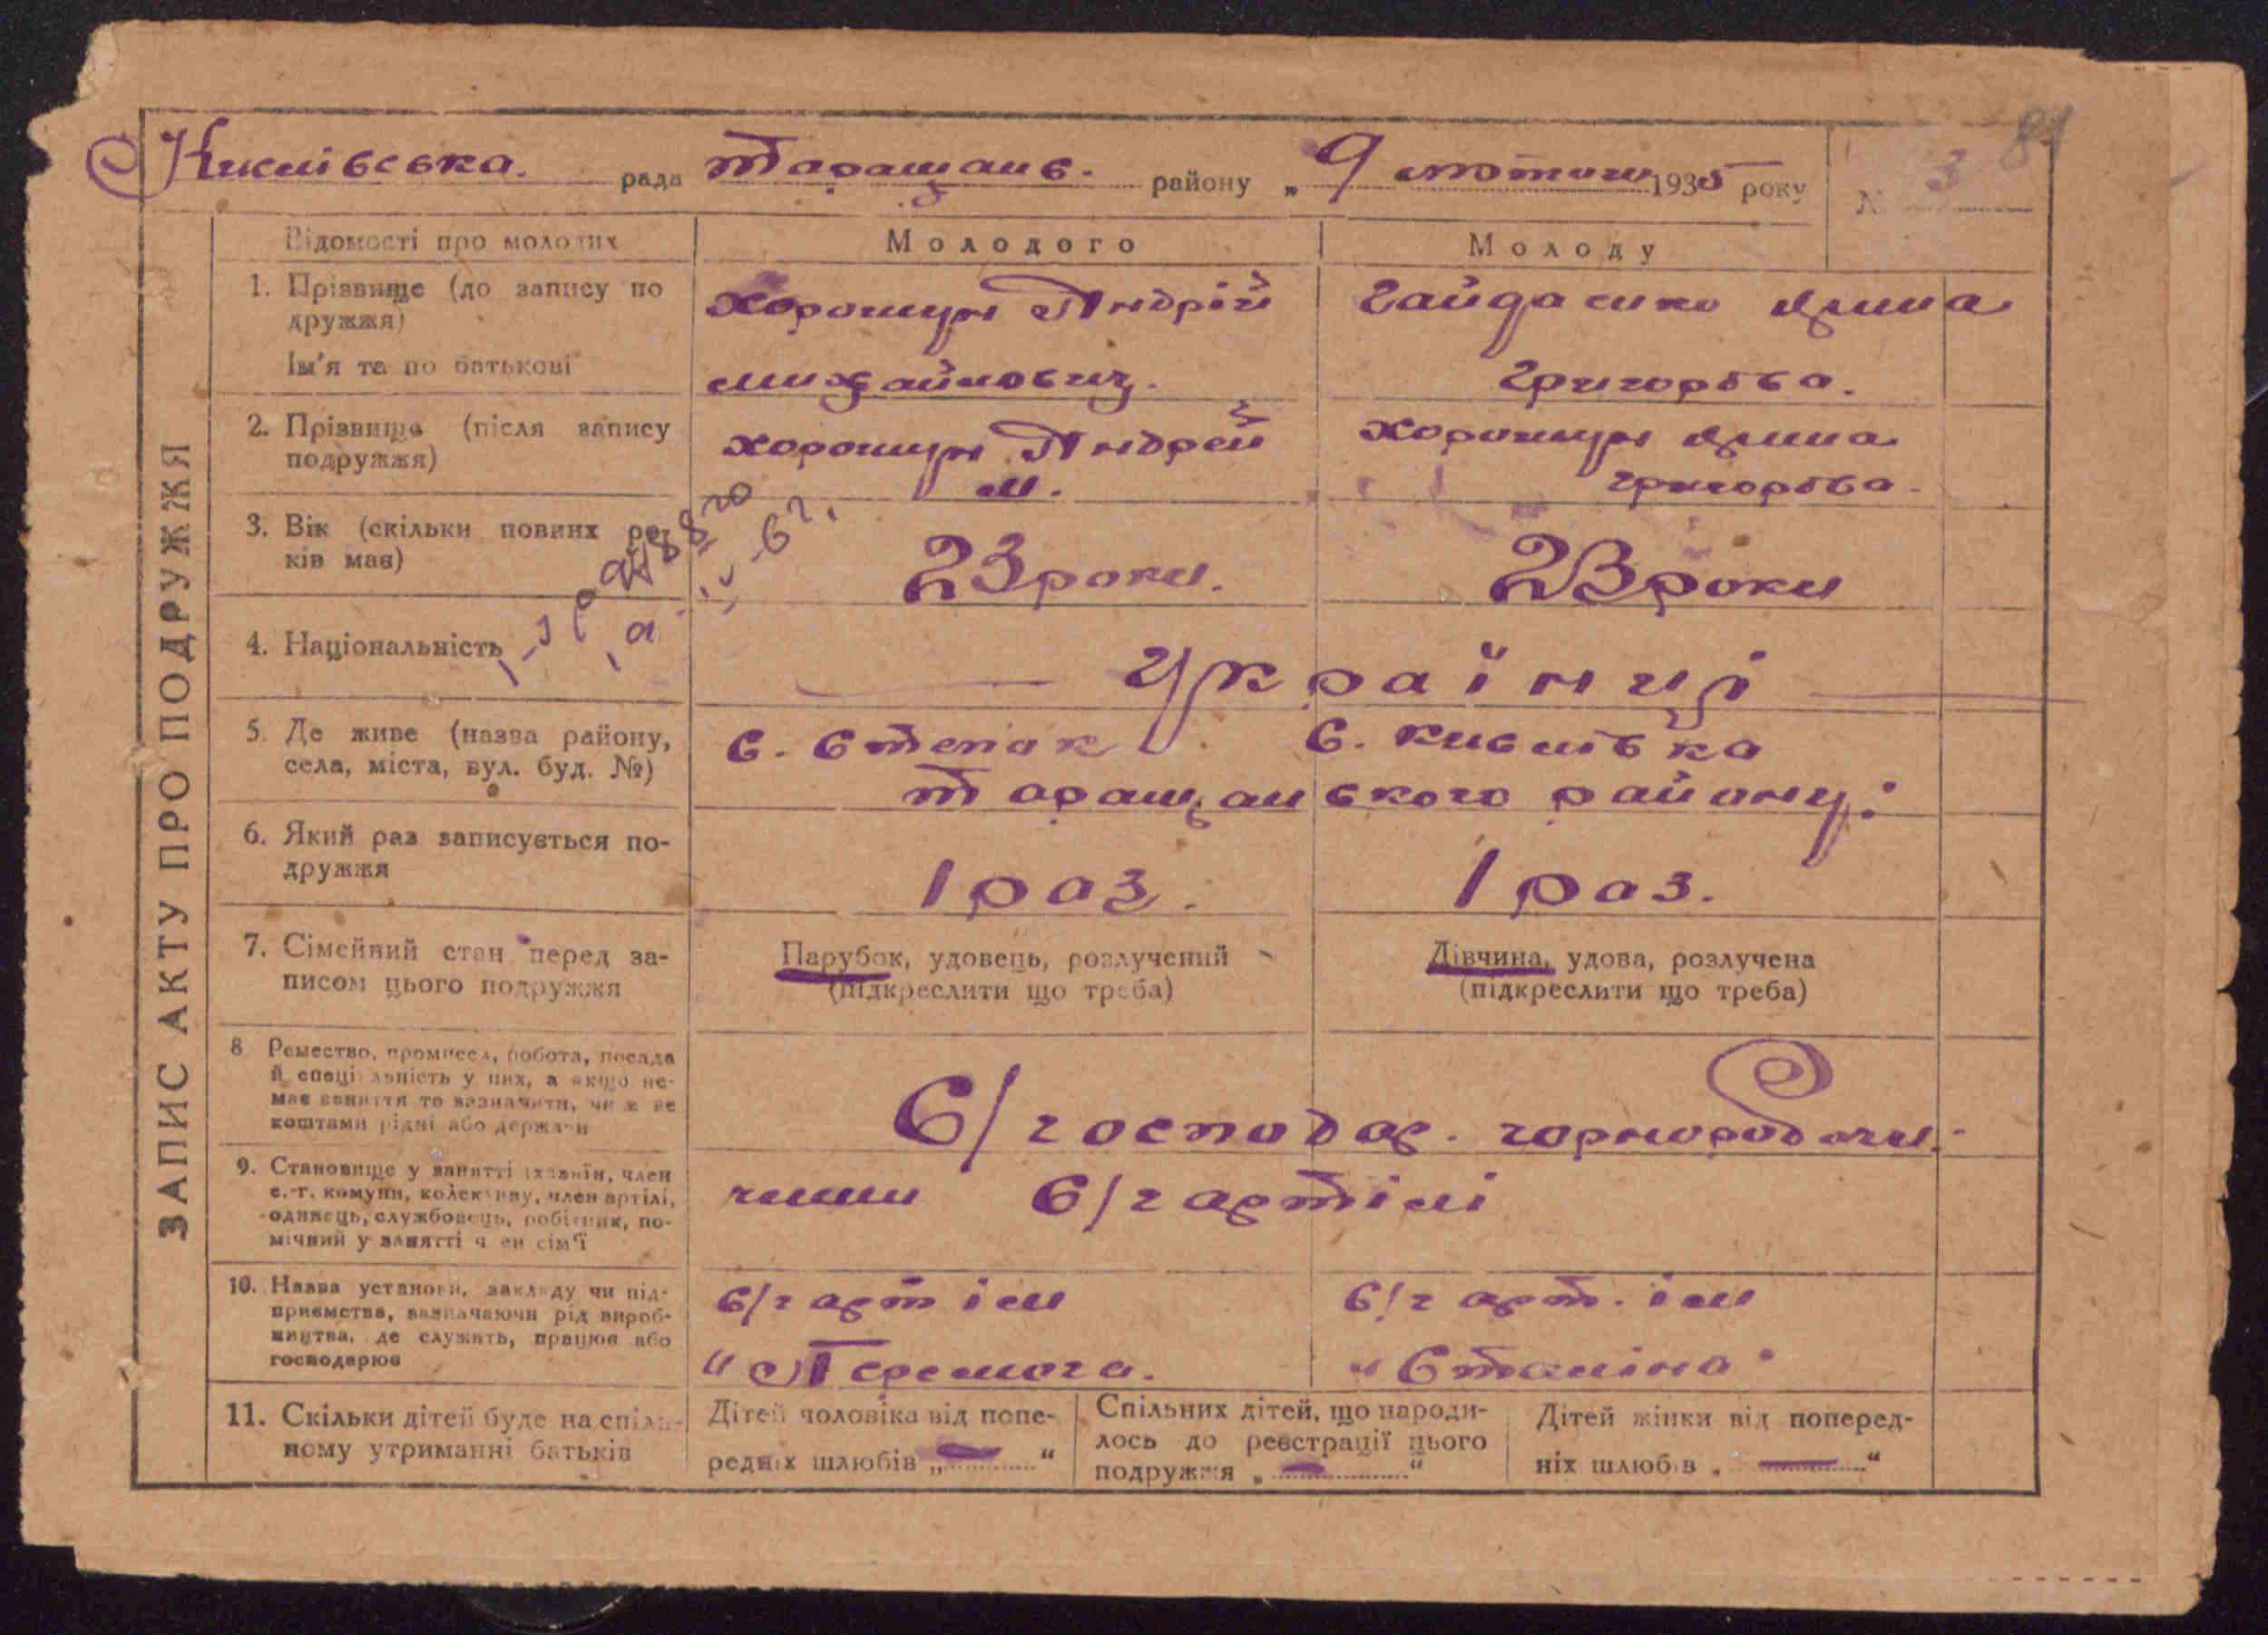 Кислівська. рада Таращанс. району „ 9 лютого 1935 року № 3
81
ЗАПИС АКТУ ПРО ПОДРУЖЖЯ
Відомості про молодих
Молодого
Молоду
1. Прізвище (до запису по
дружжя)
Ім'я та по батькові
Хорошун Андрій
Михайлович.
Гайда Ярина
Григорівна.
2. Прізвище (після запису
подружжя)
Хорошун Андрей
М.
Хорошун Ярина
3. Вік (скільки повних ро-
ків має)
23 роки.
23 роки
4. Національність
Українці
5. Де живе (назва району,
села, міста, вул. буд. №)
с. Степок
с. Кислівка
Таращанського району.
6. Який раз записується по-
дружжя
1 раз.
1 раз.
7. Сімейний стан перед за-
писом цього подружжя
Парубок, удовець, розлучений
(підкреслити що треба)
Дівчина, удова, розлучена
(підкреслити що треба)
8 Ремество, промисел, робота, посада
й спеціальність у них, а якщо не-
має заняття то зазначити, чи ж ве
коштами рідні або держави
С/господар. чорнороб
9. Становище у занятті (хазяїн, член
с.-г. комуни, колективу, член артілі,
одинець, службовець, робітник, по-
мічний у занятті член сім'ї
члени С/г артілі
10. Назва установи, закладу чи під-
приємства, зазначаючи рід вироб-
ництва, де служить, працює або
господарює
С/г артіл
„Перемога.
С/г арт. іл
„Сталіна"
11. Скільки дітей буде на спіль-
ному утриманні батьків
Дітей чоловіка від попе-
редніх шлюбів „ — “
Спільних дітей, що народи-
лось до реєстрації цього
подружжя „ — “
Дітей жінки від поперед-
ніх шлюбів „ — “